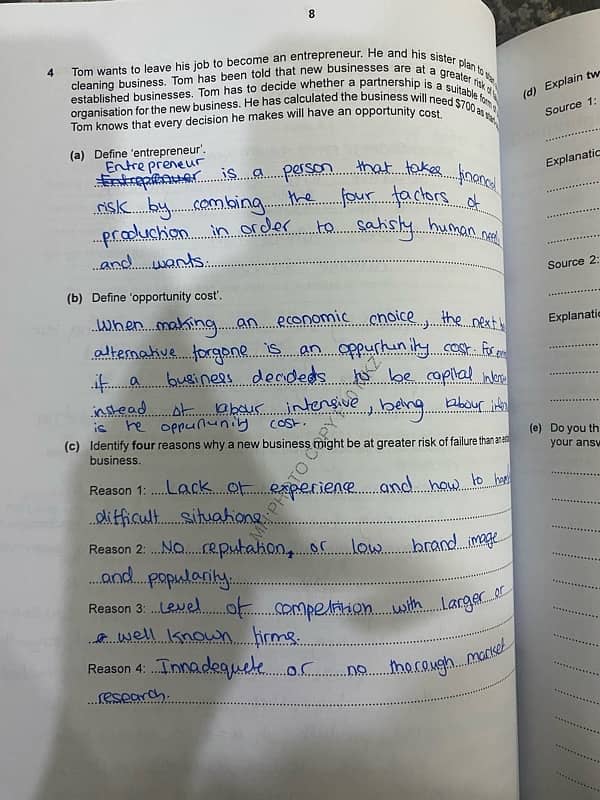 8
4 Tom wants to leave his job to become an entrepreneur. He and his sister plan to
cleaning business. Tom has been told that new businesses are at a greater risk of
established businesses. Tom has to decide whether a partnership is a suitable form of
organisation for the new business. He has calculated the business will need $700 as
Tom knows that every decision he makes will have an opportunity cost.
(a) Define 'entrepreneur'.
Entrepreneur
is a person that takes financial
risk by combing the four factors of
production in order to satisfy human needs
and wants.
(b) Define 'opportunity cost'.
When making an economic choice, the next
alternative forgone is an oppurtunity cost. For
if a business decideds to be capital
instead of labour intensive, being labour
is he oppurtunity cost.
(c) Identify four reasons why a new business might be at greater risk of failure than an
business.
Reason 1: Lack of experience and how to
difficult situations.
Reason 2: No reputation, or low brand image
and popularity.
Reason 3: Level of competition with larger or
well known firms.
Reason 4: Innadequete or no thorough market
research.
(d) Explain
Source 1:
Source 2:
(e) Do you
your